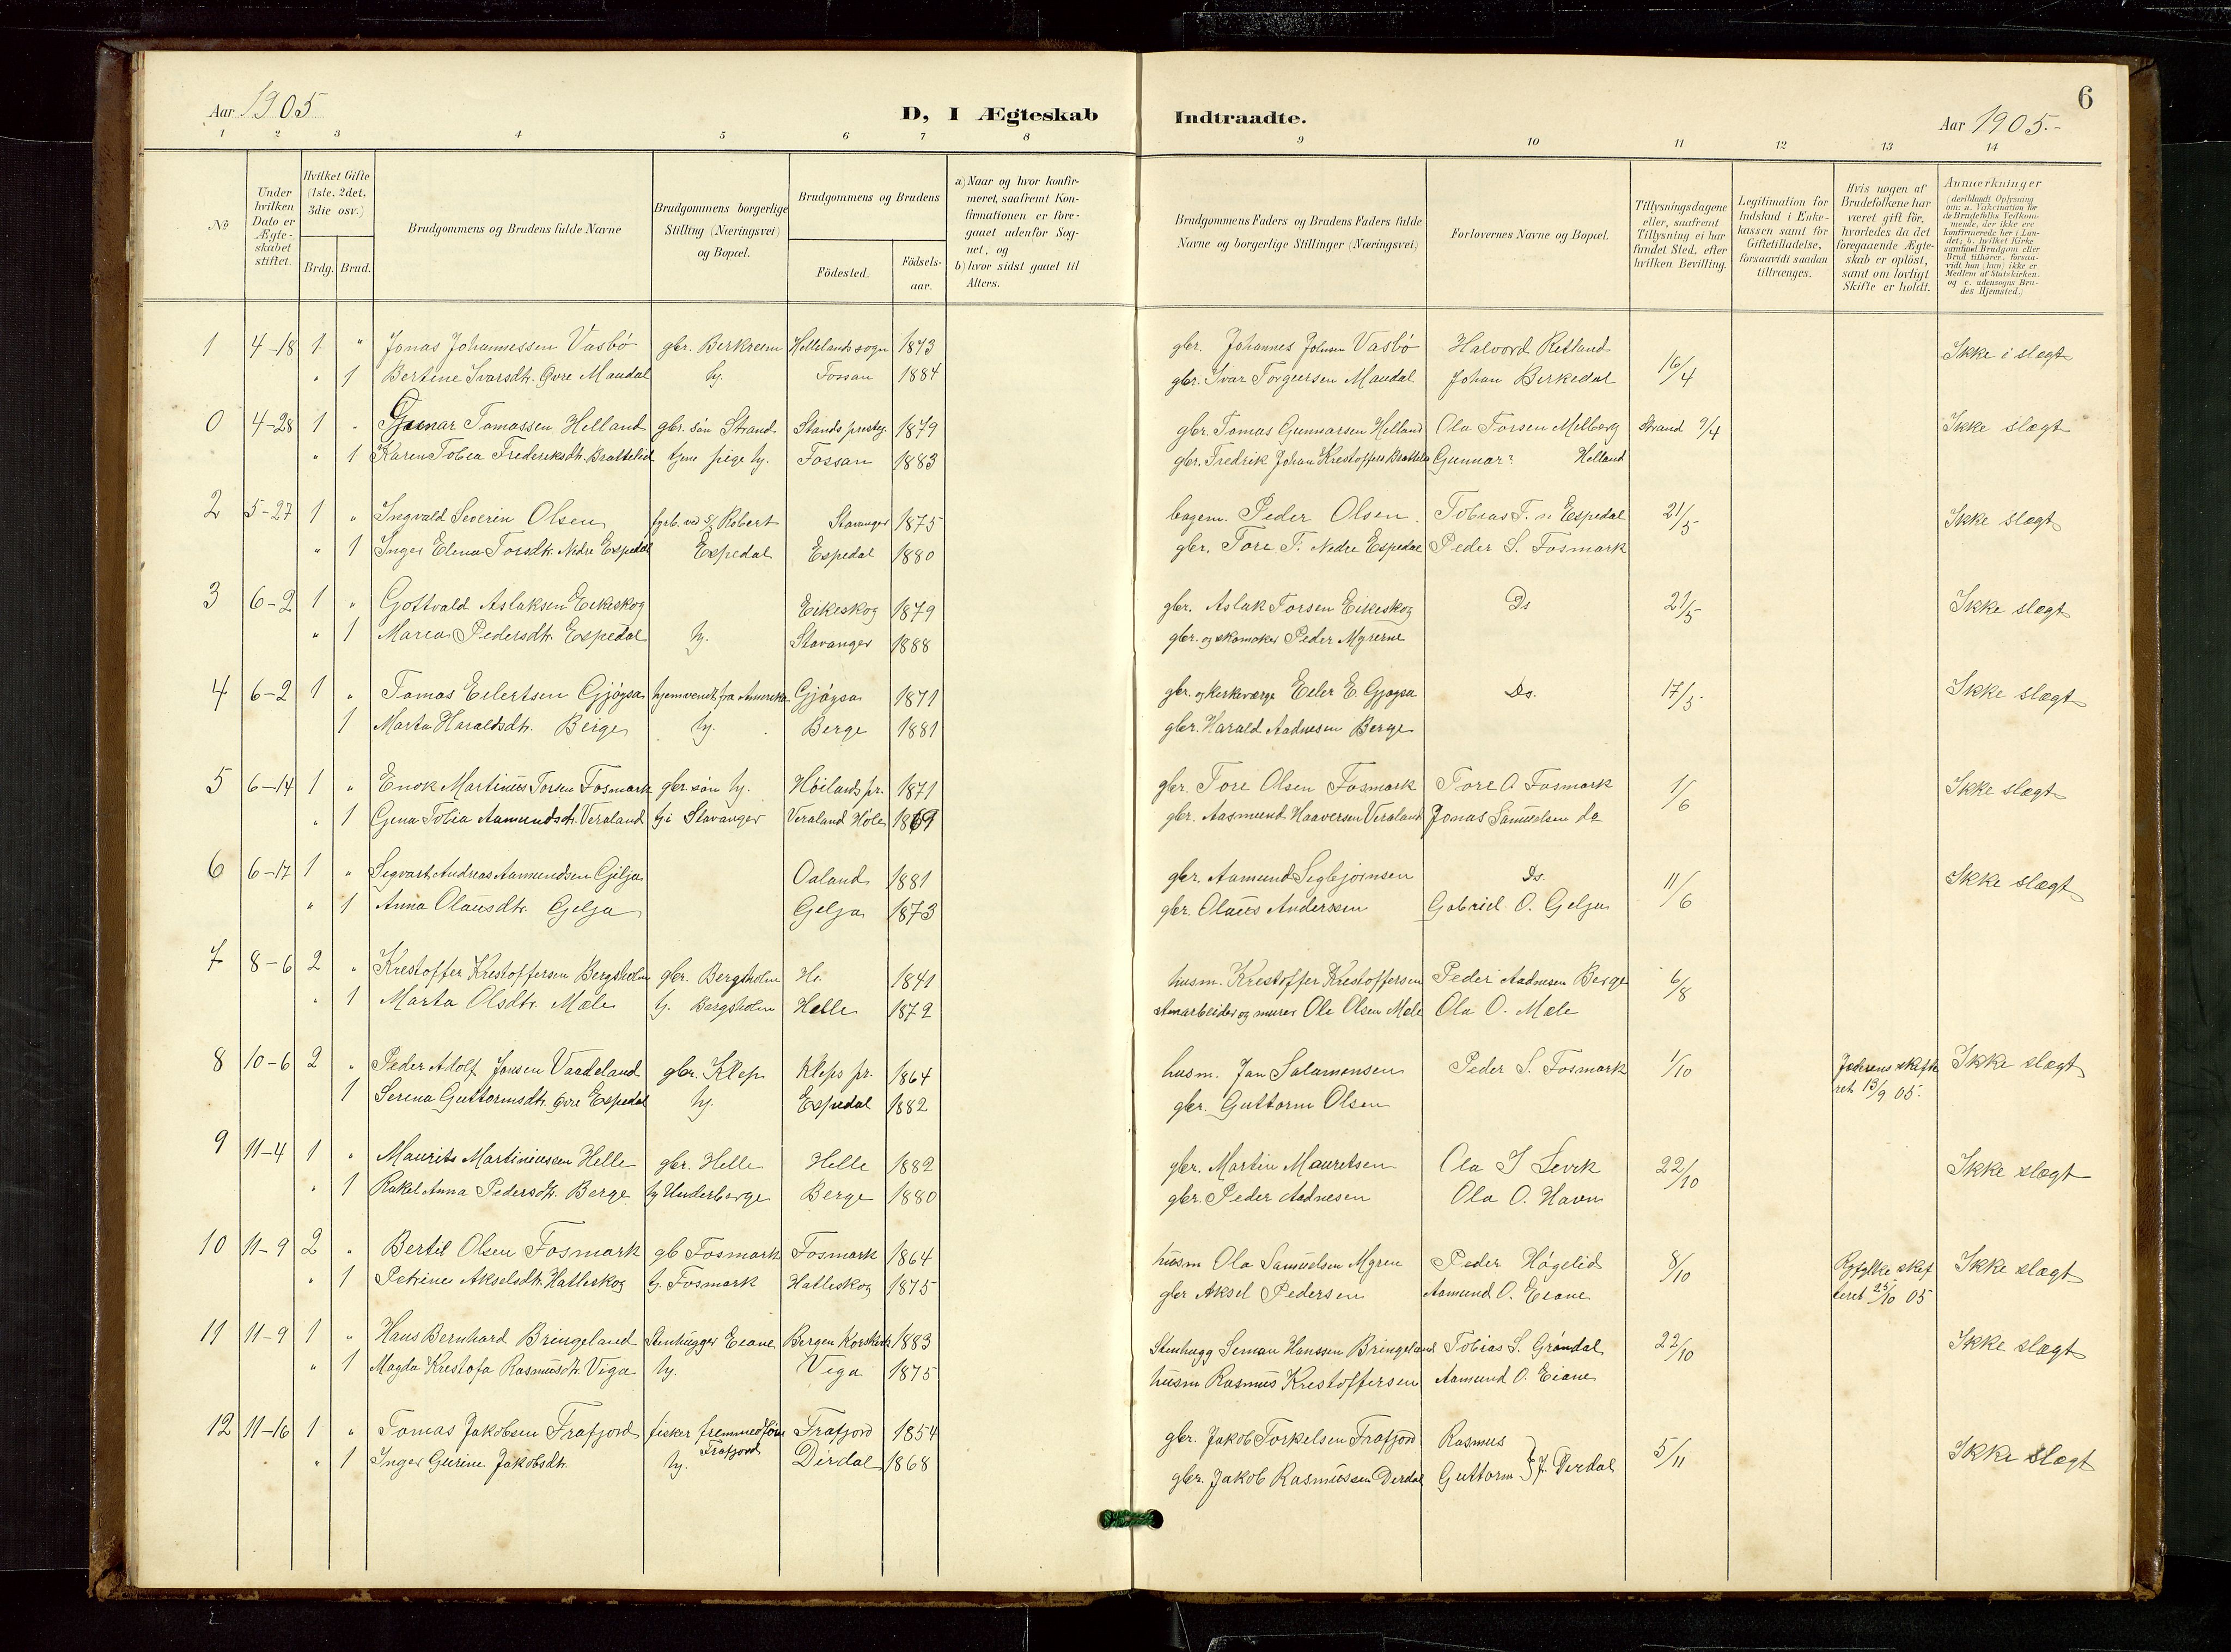 Aar 1905
D, I Ægteskab Indtraadte.
6
Aar 1905.-
1 2 3 4 5 6 7 8 9 10 11 12 13 14
No
Under hvilken Dato er Ægteskabet stiftet.
Hvilket Gifte (1ste, 2det, 3die osv.)
Brdg. Brud.
Brudgommens og Brudens fulde Navne
Brudgommens borgerlige Stilling (Næringsvei) og Bopæl.
Brudgommens og Brudens
Födested.
Födselsaar.
a) Naar og hvor konfirmeret, saafremt Konfirmationen er foregaaet udenfor Sognet, og
b) hvor sidst gaaet til Alters.
Brudgommens Faders og Brudens Faders fulde Navne og borgerlige Stillinger (Næringsvei)
Forlovernes Navne og Bopæl.
Tillysningsdagene eller, saafremt Tillysning ei har fundet Sted, efter hvilken Bevilling.
Legitimation for Indskud i Enkekassen samt for Giftetilladelse, forsaavidt saadan tiltrænges.
Hvis nogen af Brudefolkene har været gift för, hvorledes da det foregaaende Ægteskab er oplöst, samt om lovligt Skifte er holdt.
Anmærkninger (deriblandt Oplysning om: a. Vakcination for de Brudefolks Vedkommende, der ikke ere konfirmerede her i Landet; b. hvilket Kirkesamfund Brudgom eller Brud tilhörer, forsaavidt han (hun) ikke er Medlem af Statskirken, og c. udensogns Brudes Hjemsted.)
1 4-18 1 " Jonas Johannessen Vasbö gbr. Berkreem Hellelands sogn 1873 gbr. Johannes Johnsen Vasbö Halvord Retland 16/4 Ikke i slegt
" 1 Bertine Ivarsdtr. Øvre Maudal hj. Fossan 1884 gbr. Ivar Torgersen Maudal Johan Birkedal
0 4-28 1 " Gunnar Tomassen Helland gbr. sön Strand Stands prestg. 1879 gbr. Tomas Gunnarsen Helland Ola Torsen Melberg Strand 9/4 Ikke slegt
" 1 Karen Tobea Frederiksdtr. Brattelid tjene pige hj. Fossan 1883 gbr. Fredrik Johan Krestoffers Brattelid Gunnar? Helland
2 5-27 1 " Ingvald Severin Olsen fyrb. ved S/S Robert Stavanger 1875 bagem. Peder Olsen Tobias T. n. Espedal 21/5 Ikke slegt
" 1 Inger Elena Torsdtr. Nedre Espedal Espedal Espedal 1880 gbr. Tore T. Nedre Espedal Peder S. Fosmark
3 6-2 1 " Gottvald Aslaksen Eikeskog Eikeskog 1879 gbr. Aslak Torsen Eikeskog Ds 21/5 Ikke slegt
" 1 Marea Pedersdtr. Espedal hj. Stavanger 1888 gbr. og skomaker Peder Myrerne
4 6-2 1 " Tomas Eilertsen Gjögsa hjemvendt fra Amerika Gjögsa 1871 gbr. og kerkeværge Eeler E. Gjögsa Ds. 17/5 Ikke slegt
1 Marta Haraldsdtr. Berge hj. Berge 1881 gbr. Harald Aadnesen Berge
5 6-14 1 " Enok Martinus Torsen Fosmark gbr. sön hj. Höilands pr. 1871 gbr. Tore Olsen Fosmark Tore O Fosmark 1/6 Ikke slegt
" 1 Gjena Tobia Aamundsdtr. Veraland tj. i Stavanger Veraland Höle 1869 gbr. Aasmund Haaversen Veraland Jonas Samuelsen do
6 6-17 1 " Segvart Andreas Aamundsen Gilja Oaland 1881 gbr. Aamund Segbjörnsen Ds. 11/6 Ikke slegt
" 1 Anna Olausdtr. Gelja Gelja 1873 gbr. Olaus Anderssen Gabriel O. Gelja
7 8-6 2 " Krestoffer Krestoffersen Bergsholm gbr. Bergsholm Hr. 1841 husm. Krestoffer Krestoffersen Peder Aadnesen Berge 6/8
" 1 Marta Olsdtr. Mæle tj. Bergsholm Helle 1872 stenarbeider og murer Ole Olsen Mæle Ola O. Mæle
8 10-6 2 " Peder Adolf Jansen Vaadeland gbr. Klep Kleps pr. 1864 husm. Jan Salamonsen Peder S. Fosmark 1/10 Jæderens skifteret 13/9 05. Ikke slegt
1 Serena Guttormsdtr. Övre Espedal hj. Espedal 1882 gbr. Guttorm Olsen
9 11-4 1 " Maurits Martiniussen Helle gbr. Helle Helle 1882 gbr. Martin Mauretsen Ola I Levik 22/10 Ikke slegt
" 1 Rakel Anna Pedersdtr. Berge tj Underberge Berge 1880 gbr. Peder Aadnesen Ola O. Havn
10 11-9 2 " Bertel Olsen Fosmark gb Fosmark Fosmark 1864 husm Ola Samuelsen Myren Peder Högelid 8/10 Ryfylke skefteret 25/10 05 Ikke slegt
" 1 Petrine Akselsdtr. Hatleskog tj. Fosmark Hatleskog 1875 gbr Aksel Pedersen Aamund O. Eiane
11 11-9 1 " Hans Bernhard Bringeland Stenhugger Eiane Bergen Korskirk 1883 Stenhugg Seman Hanssen Bringeland Tobias S. Gröndal 22/10 Ikke slegt
" 1 Magda Krestofa Rasmusdtr. Viga hj. Viga 1875 husm Rasmus Krestoffersen Aamund O. Eiane
12 11-16 1 " Tomas Jakobsen Frafjord fisker fremmedför Frafjord Frafjord 1854 gbr. Jakob Torkelsen Frafjord Rasmus } J. Derdal 5/11 Ikke slegt
" 1 Inger Gurine Jakobsdtr. hj. Dirdal 1868 gbr. Jakob Rasmussen Derdal Guttorm